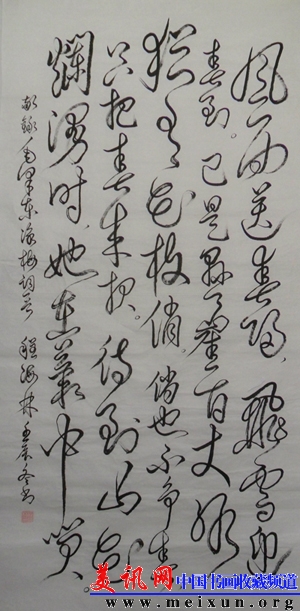 风雨送春归，飛雪迎
春到。已是悬崖百丈冰
犹有花枝俏。俏也不争春
只把春来报。待到山花
爛漫时，她在叢中笑。
敬錄毛泽东咏梅词 程海林 壬辰冬书
美讯网 中国书画收藏频道
www.meixun.org